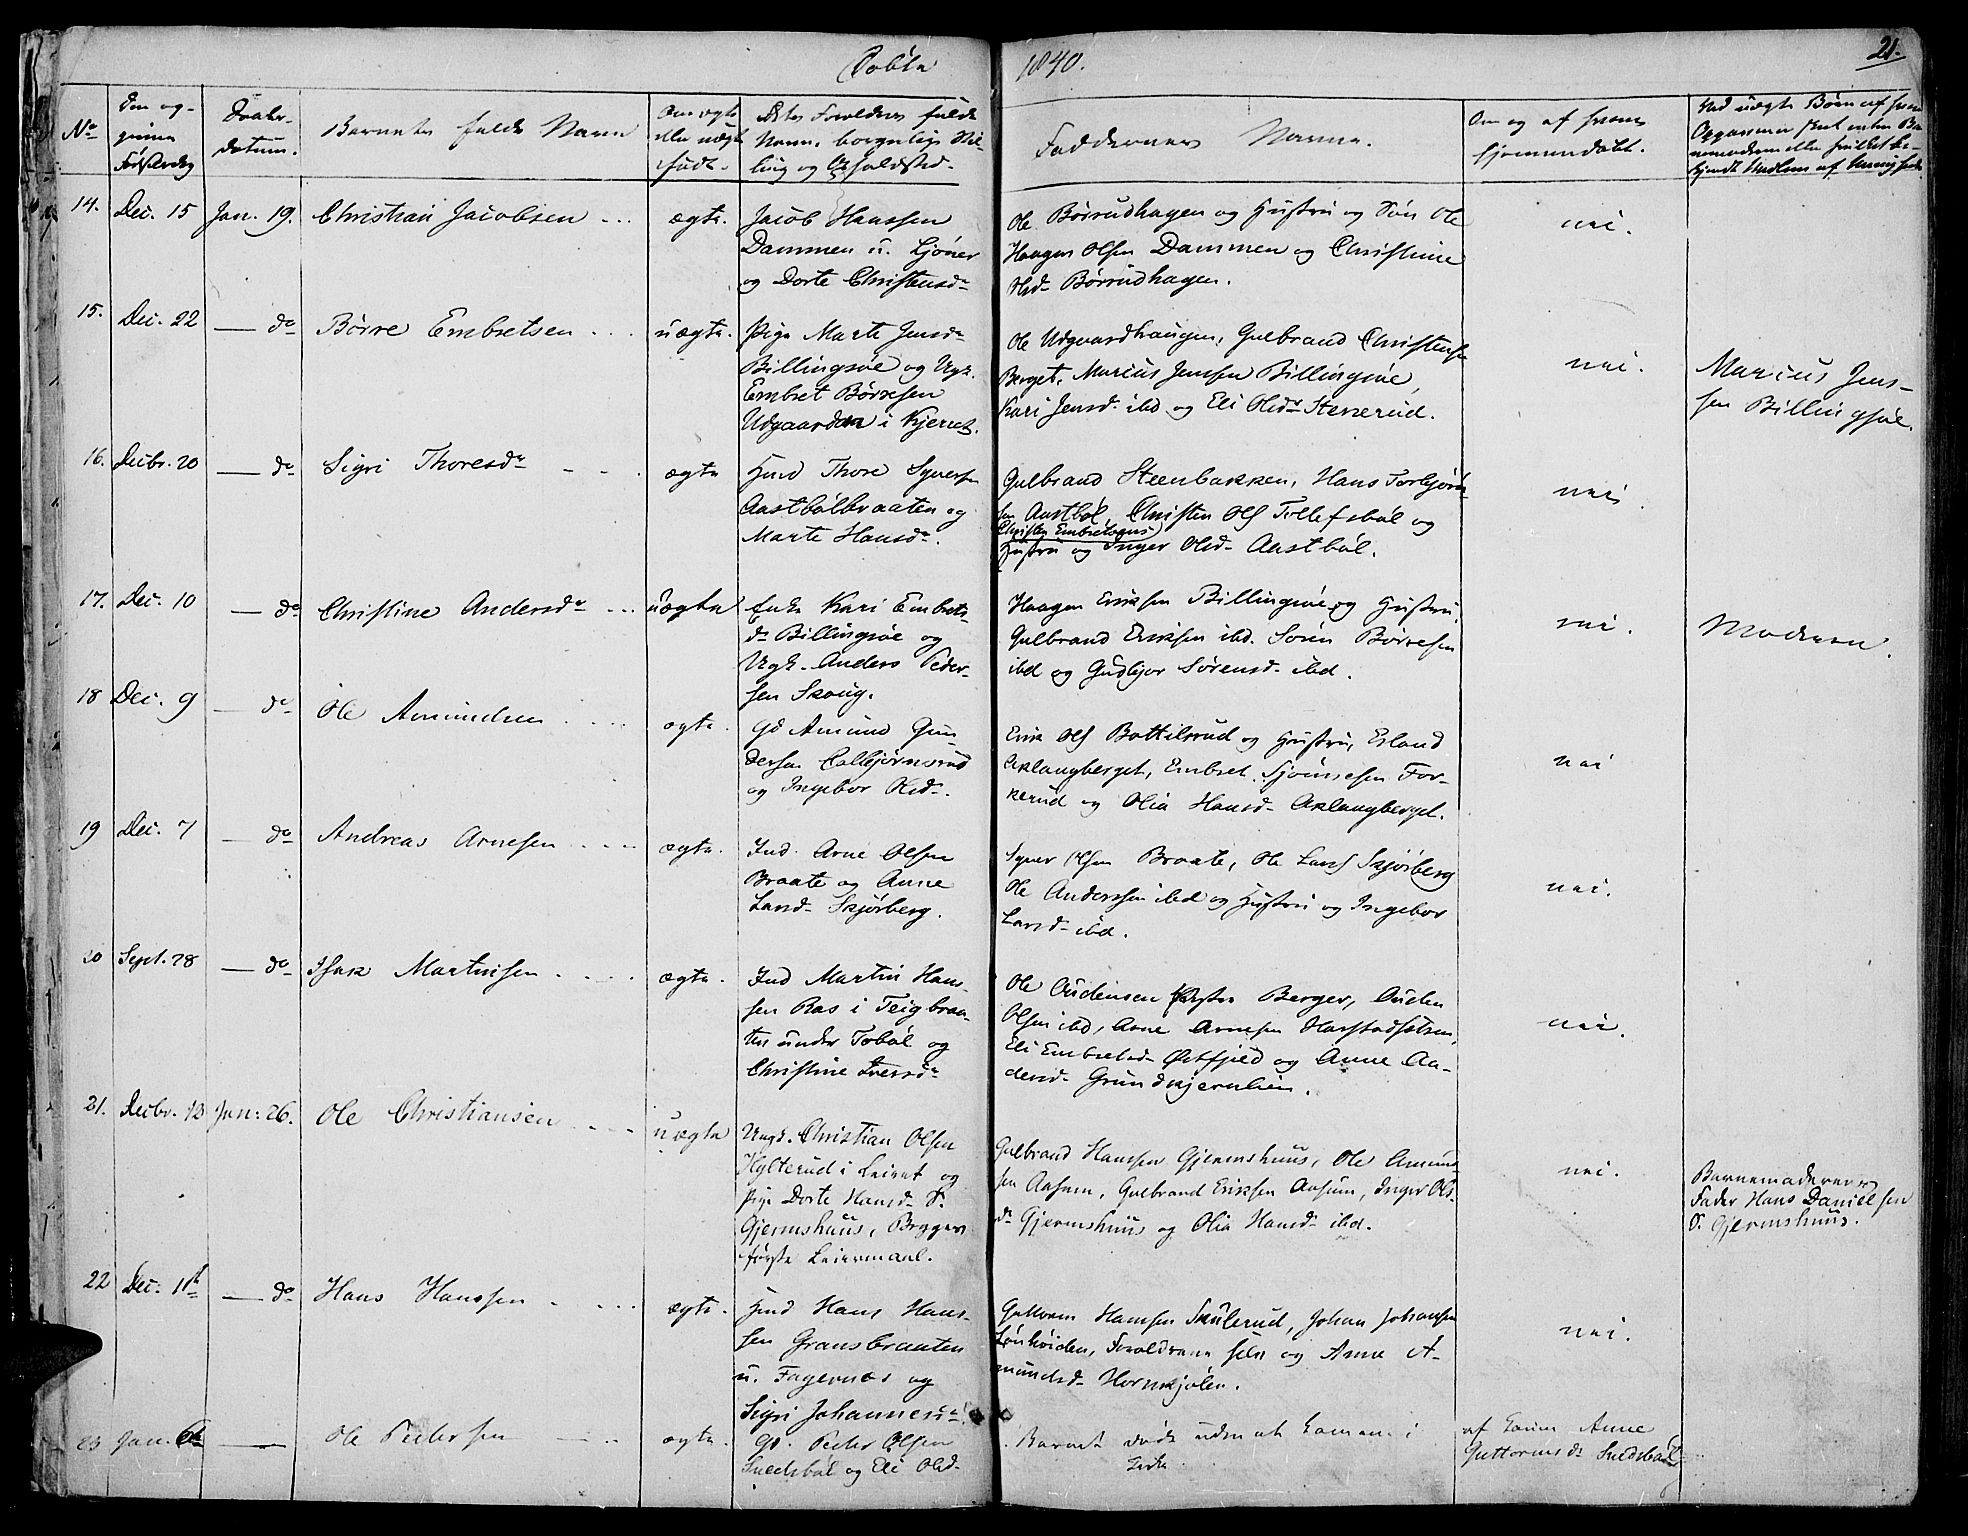 Døbte 1840. 21.
No
Den og-
Daabs-
datum.
Barnets fulde Navn
Om ægte
eller uægte
født.
Dets Forældres fulde
Navn, borgerlige Stil-
ling og Opholdsted.
Faddernes Navne.
Om og af hvem
hjemmedøbt.
Ved uægte Børn af hvem
14. Dec. 15 Jan. 19. Christian Jacobsen ægte. nei.
Jacob Hanssen
Dammen u.
og Dorte Christensdr
Ole Børrudhagen og Hustru og Søn Ole
Haagen Olsen Dammen og Christine
Olsd. Børrudhagen.
15. Dec. 22 do Børre Embretsen uægte. nei.
Pige Marte Jensdr
Billingsøe og Ugk.
Embret Børresen
Udgaarden i Kjernet.
Ole Udgaardhaugen, Gulbrand Christensen
Berget, Marius Jenssen Billingsøe,
Kari Jensd. ibd og Eli Olsdr Stenerud.
Marius Jens-
sen Billingsøe.
16. Decbr. 20 do Sigri Thoresdr ægte nei.
Huusd Thore Syversen
Aastbølbraaten og
Marte Hansdr.
Gulbrand Steenbakken, Hans Torbjørn-
sen Aastbøl, Christen Ols Tollefsbøl og
Christen Embret
Hustru og Inger Olsd. Aastbøl.
17. Dec. 10 do Christine Andersdr uægte nei.
Enke Kari Embrets-
dr Billingsøe og
Ugk. Anders Peder-
sen Skoug.
Haagen Eriksen Billingsøe og Hustru,
Gulbrand Eriksen ibd. Søren Børresen
ibd og Gudbjor Sørensd. ibd.
Moderen.
18 Dec. 9 do Ole Amundsen ægte. nei
Gd Amund Gun-
dersen Callbjørnsrud
og Ingebor Olsd.
Erik Ols Bottilsrud og Hustru, Erland
Aklangberget, Embret
kerud og Olia Hansd. Aklangberget.
19 Dec. 7 do Andreas Arnesen ægte. nei.
Ind. Arne Olsen
Braate og Anne
Larsd. Skjørberg.
Syver Olsen Braate, Ole Lars Skjørberg
Ole Anderssen ibd og Hustru og Ingebor
Larsd. ibd.
20 Sept. 28 do Isak Martinsen ægte. nei.
Ind Martin Hans-
sen Ras i Teigbraa-
ten under Tobøl og
Christine Iversdr
Ole Audensen Berger, Auden
Olsen ibd, Arne Arnesen
Eli Embretsd. Østfjeld og Anne An-
dersd. Grundkjernlien.
21. Decbr. 12 Jan: 26. Ole Christiansen uægte nei.
Ungk. Christian Olsen
Hylterud i Leiret og
Pige Dorte Hansd. S.
Gjermshuus, Begges
første Leiermaal.
Gulbrand Hanssen Gjermshuus, Ole Amund-
sen Aasum, Gulbrand Eriksen Aasum, Inger Ols-
dr Gjermshuus og Olia Hansd. ibd.
Barnemoderens
Fader Hans Danielsen
S. Gjermshuus.
22 Dec. 11 do Hans Hanssen ægte. nei.
Huusd Hans Hans-
sen Gransbraaten
u. Fagernæs og
Sigri Johannesdr
Guttorm Hanssen Skulerud, Johan Johansen
Lønhøiden, Forældrene selv og Anne A-
mundsd. Hornkjølen.
23 Jan. Ole Pedersen ægte.
Gd. Peder Olsen
Suldsbøl og Eli Olsd.
Barnet døde uden at komme i
Kirke
af Konen Anne
Guttormsd. Suldsbøl